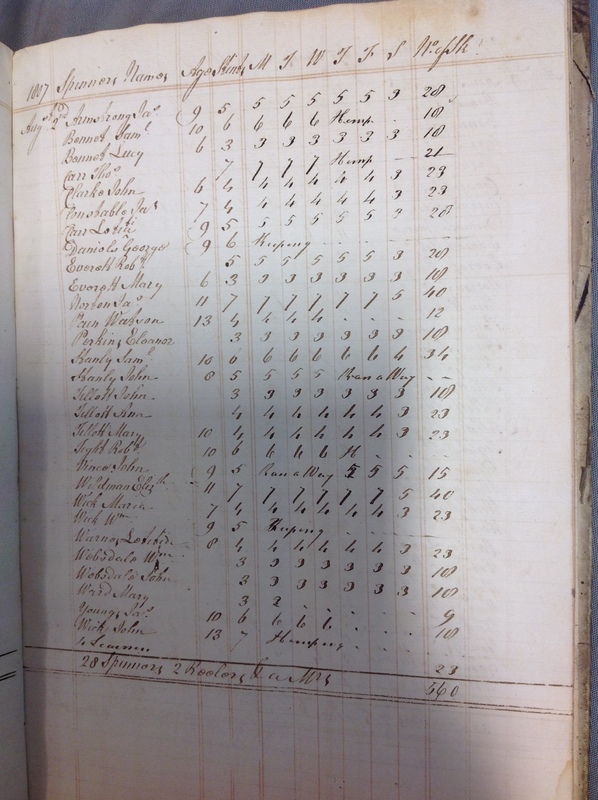 1807 Spinners Names Ages Stint M T W T F S No. of Sk.
Augst 2nd Armstrong Jas. 9 5 5 5 5 5 5 3 28
Bonnet Saml. 10 6 6 6 6 Hemp - - 18
Bonnet Lucy 6 3 3 3 3 3 3 3 18
Carr Thos. 7 7 7 7 Hemp - - 21
Clarke John 6 4 4 4 4 4 4 3 23
Constable Jas. 7 4 4 4 4 4 4 3 23
Carr Lotie 9 5 5 5 5 5 5 3 28
Daniels George 9 6
Everett Robt. 5 5 5 5 5 5 3 28
Everett Mary 6 3 3 3 3 3 3 3 18
Norton Jas. 11 7 7 7 7 7 7 5 40
Pain Watson 13 4 4 4 4 - - - 12
Perkins Eleanor 3 3 3 3 3 3 3 18
Hanly Saml. 10 6 6 6 6 6 6 4 34
Hanly John 8 5 5 5 5 Ran a Way - -
Tillott John 3 3 3 3 3 3 3 18
Tillott Ann 4 4 4 4 4 4 3 23
Tillott Mary 10 4 4 4 4 4 4 3 23
Tight Robt. 10 6 6 6 6 H - -
Vince John 9 5 Ran a Way 5 5 5 15
Wildman Elizth. 11 7 7 7 7 7 7 5 40
Wick Maria 7 4 4 4 4 4 4 3 23
Wick Wm. 9 5
Warnes 8 4 4 4 4 4 4 3 23
Wobsdale Wm. 3 3 3 3 3 3 3 18
Wobsdale John 3 3 3 3 3 3 3 18
Ward Mary 3 2 - - - - -
Youngs Jas. 10 6 6 6 6 - - - 9
Wick John 13 7 - - - 18
28 Spinners 2 Reelers & a Mrs 23
560